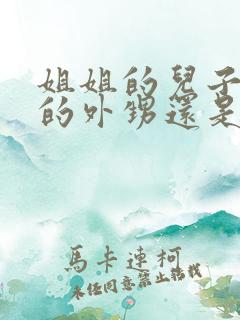 姐姐的兒子
的外甥還是
馬卡連柯
未經同意禁止轉載